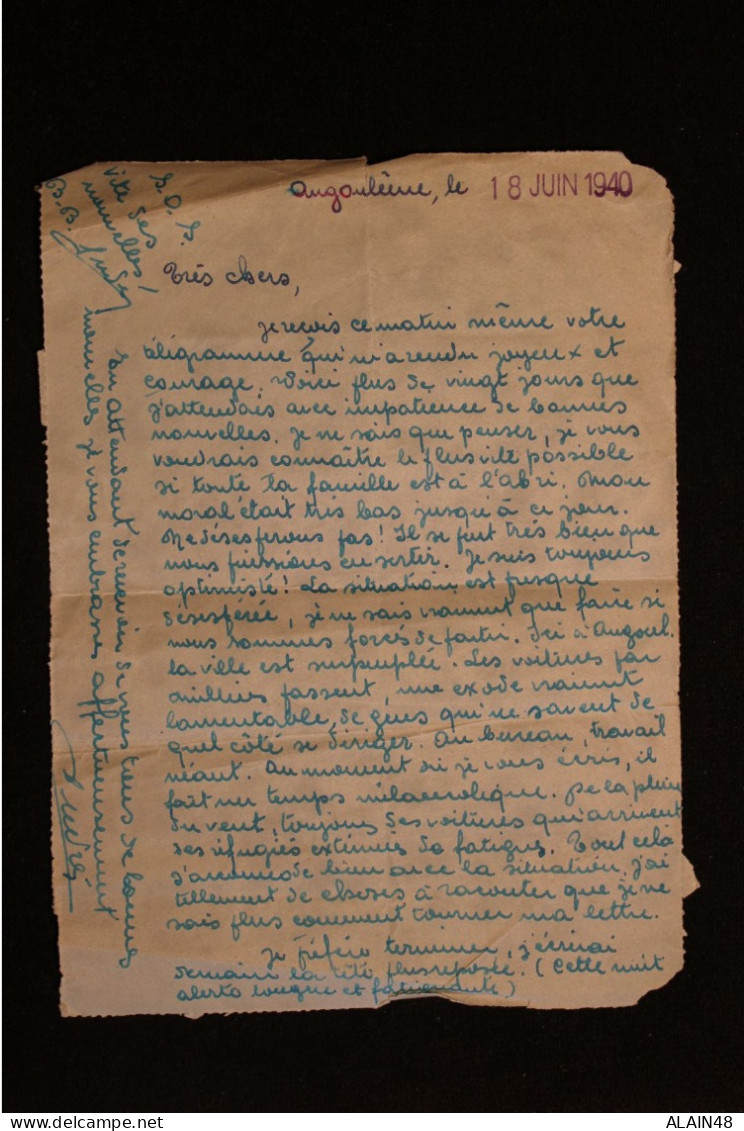 Angoulême, le 18 JUIN 1940
Très chers,
Je reçois ce matin même votre
télégramme qui m'a rendu joyeux et
courage. Voici plus de vingt jours que
j'attendais avec impatience de bonnes
nouvelles. Je ne sais que penser, je vous
voudrais connaître le plus vite possible
si toute la famille est à l'abri. Mon
moral était très bas jusqu'à ce jour.
Ne désespérons pas! Il se peut très bien que
nous puissions en sortir. Je suis toujours
optimiste! La situation est presque
désespérée, je ne sais vraiment que faire si
nous sommes forcés de partir. Ici à Angoul.
la ville est surpeuplée. Les voitures par
milliers passent, une exode vraiment
lamentable, de gens qui ne savent de
quel côté se diriger. Au bureau, travail
néant. Au moment où je vous écris, il
fait un temps mélancolique. De la pluie
du vent, toujours des voitures qui arrivent
des réfugiés exténués de fatigue. Tout cela
s'accommode bien avec la situation. J'ai
tellement de choses à raconter que je ne
sais plus comment tourner ma lettre.
Je préfère terminer, j'écrirai
demain la tête plus reposée. (Cette nuit
alerte longue et fatigante)
En attendant de recevoir de vous tous de bonnes
nouvelles je vous embrasse affectueusement
André
S.O.S.
vite des
nouvelles!
B.B.
ALAIN48